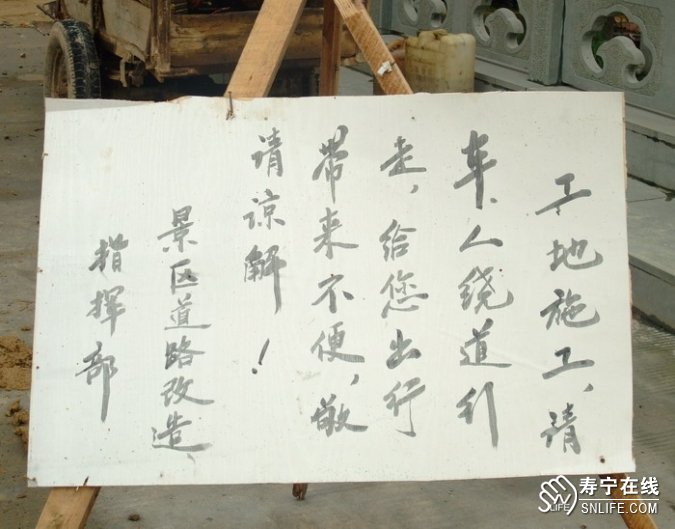 工地施工,请
车、人绕道行
走,给您出行
带来不便,敬
请谅解!
景区道路改造
指挥部
寿宁在线
SNLIFE.COM
LIFE